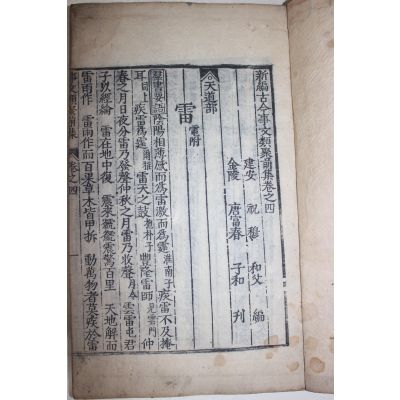 新編古今事文類聚前集卷之四
建安 祝穆 和父 編
金陵 唐富春 子和 刊
天道部
雷 電附
群書要語陰陽相薄感而為雷激而為霆淮南子疾雷不及掩
耳同上疾雷為霆爾雅雷天之鼓抱朴子豐隆雷師見雲門仲
春之月日夜分雷乃發聲仲秋之月雷乃收聲月令雲雷屯君
子以經綸 雷在地中復 震來虩虩震驚百里 天地解而
雷雨作 雷雨作而百果草木皆甲拆 動萬物者莫疾於雷
事文類聚前集 卷之四 一